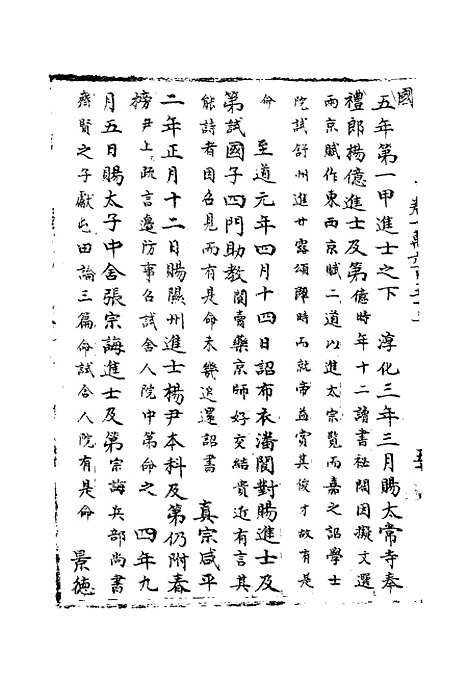 國
五年第一甲進士之下　淳化三年三月賜太常寺奉
禮郎楊億進士及第億時年十二讀書祕閣因擬文選
兩京賦作東西京賦二道以進太宗覽而嘉之詔學士
院試舒州進甘露頌卽時而就帝益賞其俊才故有是
命　至道元年四月十四日詔布衣潘閬對賜進士及
第試國子四門助教閬賣藥京師好交結貴近有言其
能詩者因召見而有是命未幾追還詔書　真宗咸平
二年正月十二日賜隰州進士楊尹本科及第仍附春
榜尹上疏言邊防事召試舍人院中第命之　四年九
月五日賜太子中舍張宗誨進士及第宗誨兵部尚書
齊賢之子獻屯田論三篇命試舍人院有是命　景德